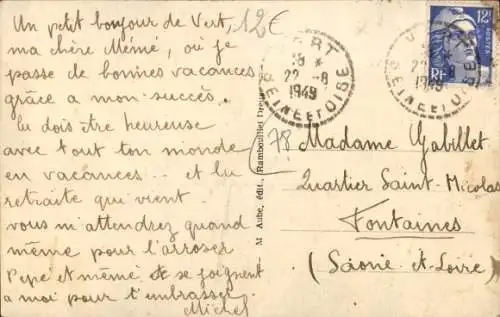 Un petit bonjour de Vert,
ma chère Mémé, où je
passe de bonnes vacances
grâce a mon succès.
Tu dois être heureuse
avec tout ton monde
en vacances... et la
retraite qui vient.
vous m'attendrez quand
même pour l'arroser
Pépé et mémé se joignent
a moi pour t'embrasser.
Michel
12€
M. Aubé, édit., Rambouillet
78
VERT
18 *
22-8
1949
SEINE ET OISE
VERT
22-8
1949
SEINE ET OISE
12F
POSTES
RF
Madame Gabillet
Quartier Saint-Nicolas
Fontaines
(Saône-et-Loire)